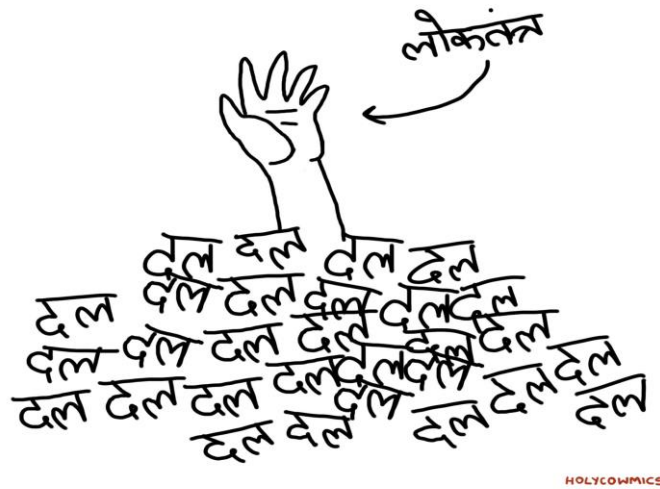 लोकतंत्र
दल दल दल दल
दल दल दल दल दल
दल दल दल
दल दल दल दल
दल दल दल दल
दल दल दल दल दल
दल दल दल दल
HOLYCOWMICS